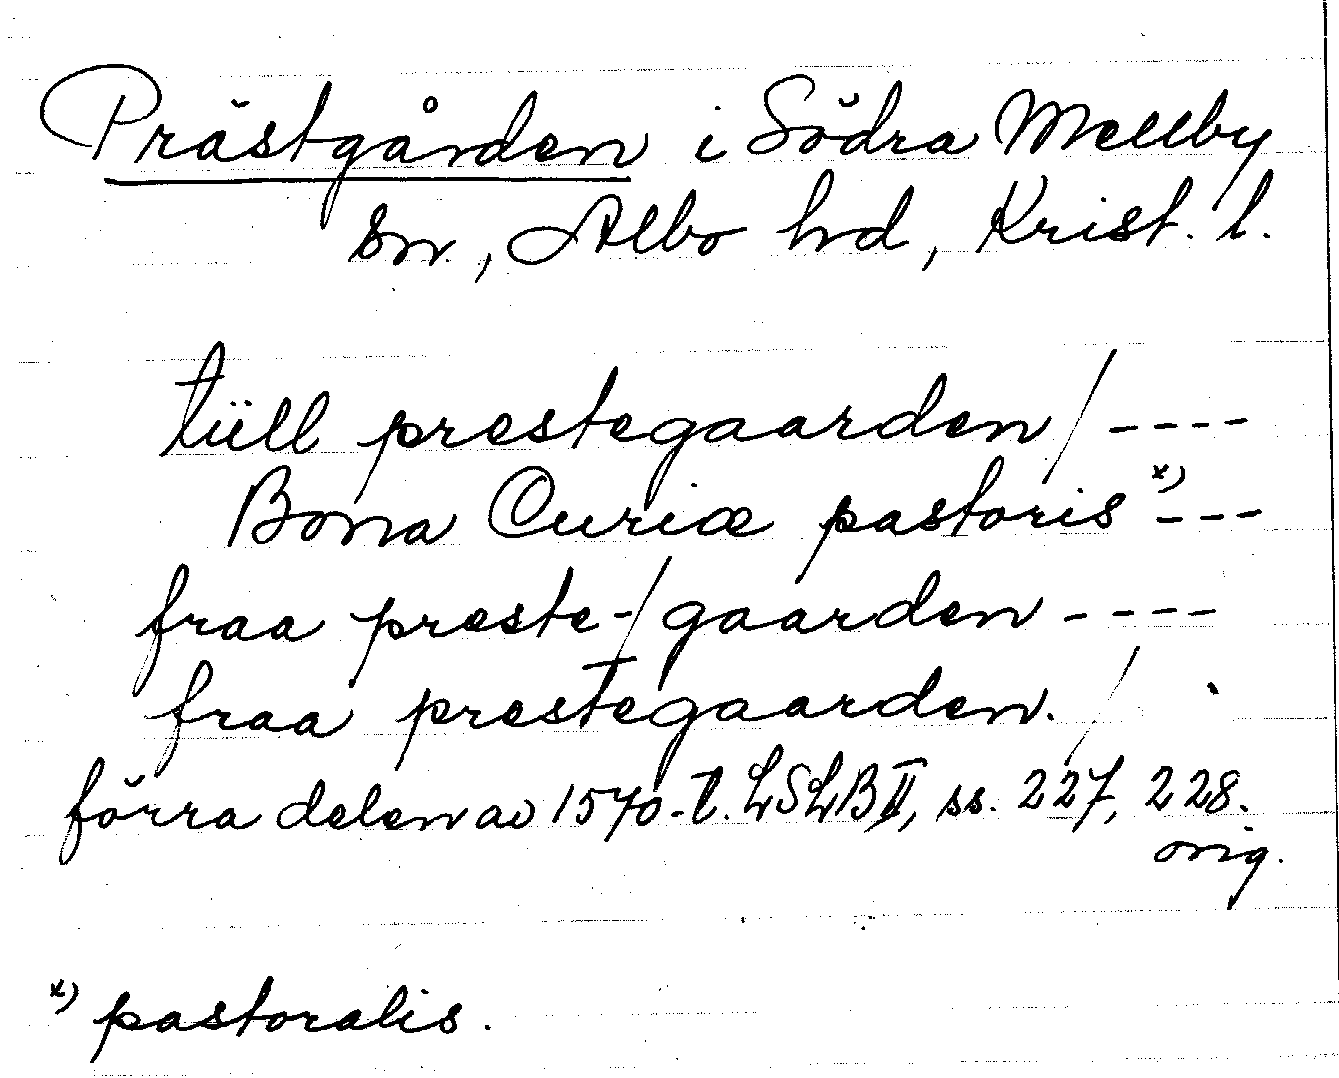 Prästgården i Södra Mellby
sn., Albo hd, Krist. l.
tüll prestegaarden/ ----
Bona Curiæ pastoris x) ---
fraa preste-/gaarden ----
fraa prestegaarden. /
förra delen av 1570-t. LSLB II, ss. 227, 228.
orig.
x) pastoralis.